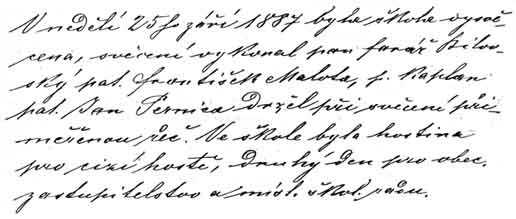 V neděli 25ho září 1887 byla škola vysvě-
cena, svěcení vykonal pan farář Bílov-
ský pat. František Malota, p. kaplan
pat. Jan Pernica držel při svěcení při-
měřenou řeč. Ve škole byla hostina
pro cizí hosté, druhý den pro obec.
zastupitelstvo a míst. škol. radu.